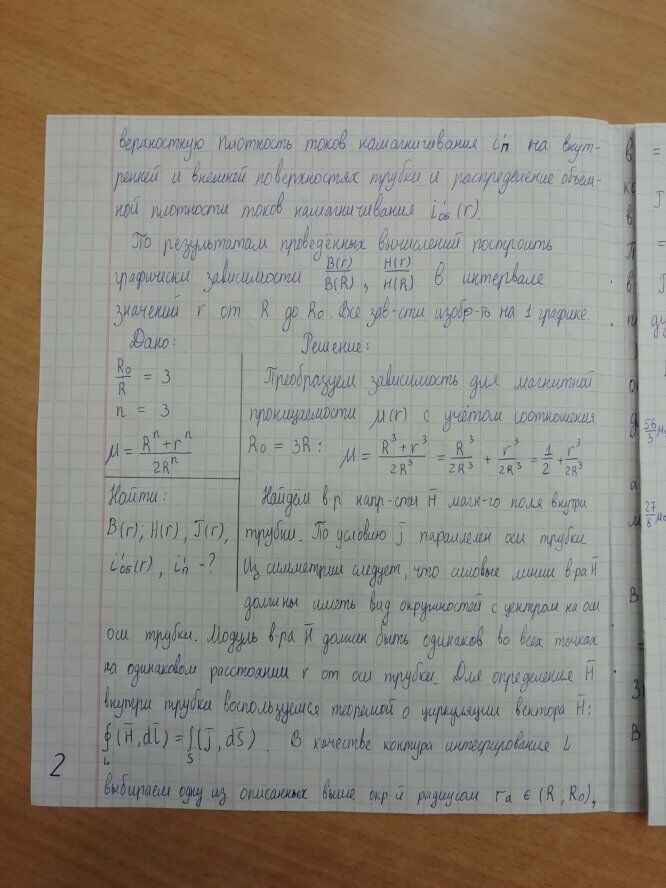 верхностную плотность токов намагничивания i'п на внут-
ренней и внешней поверхностях трубки и распределение объём-
ной плотности токов намагничивания i'об (r).
По результатам проведённых вычислений построить
графически зависимости B(r)/B(R), H(r)/H(R) в интервале
значений r от R до R₀. Все зав-сти изобр-ть на 1 графике.
Дано: Решение:
R₀/R = 3
n = 3
μ = (Rⁿ + rⁿ)/2Rⁿ
Найти:
B(r); H(r); J(r);
i'об(r), i'п - ?
Преобразуем зависимость для магнитной
проницаемости μ(r) с учётом соотношения
R₀ = 3R: μ = (R³ + r³)/2R³ = R³/2R³ + r³/2R³ = 1/2 + r³/2R³
Найдём в-р напр-сти H̄ магн-го поля внутри
трубки. По условию j̄ параллелен оси трубки
Из симметрии следует, что силовые линии в-ра H̄
должны иметь вид окружностей с центром на оси
оси трубки. Модуль в-ра H̄ должен быть одинаков во всех точках
на одинаковом расстоянии r от оси трубки. Для определения H̄
внутри трубки воспользуемся теоремой о циркуляции вектора H̄:
∮L (H̄, dl̄) = ∫S (j̄, dS̄). В качестве контура интегрирования L
выбираем одну из описанных выше окр-й радиусом rₐ ∈ (R; R₀),
2
56/3
27/8